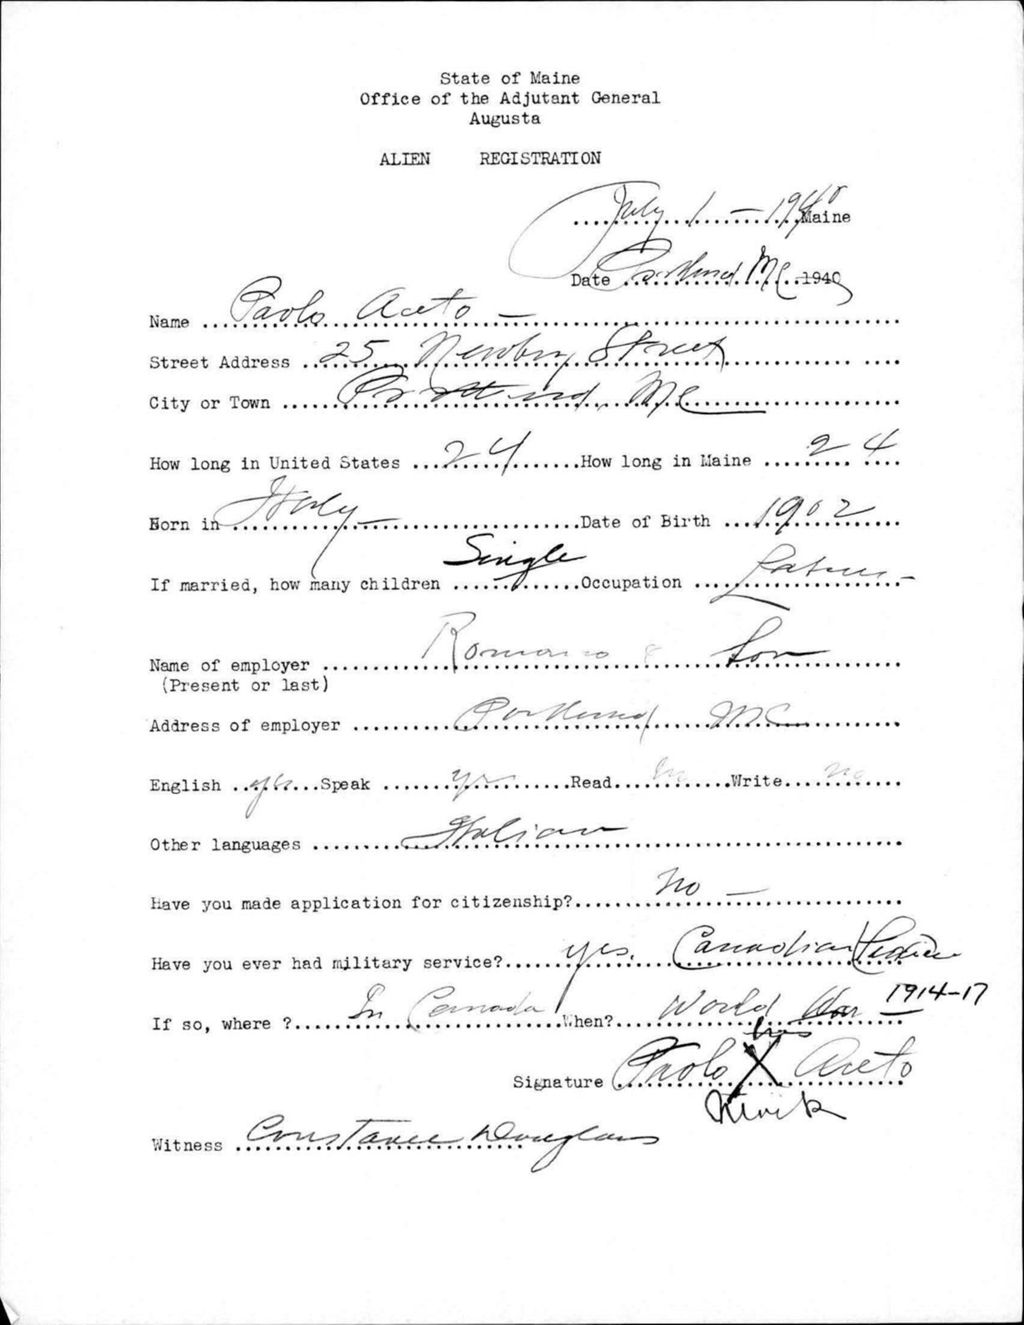 State of Maine
Office of the Adjutant General
Augusta
ALIEN REGISTRATION
July 1 - 1940 Maine
Date Portland Me 1940
Name Paolo Aceto -
Street Address 25 Newbury Street
City or Town Portland, Me
How long in United States 24 How long in Maine 24
Born in Italy - Date of Birth 1902
If married, how many children Single Occupation
Name of employer Romano & Son
(Present or last)
Address of employer Portland Me
English yes Speak yes Read no Write no
Other languages Italian
Have you made application for citizenship? No -
Have you ever had military service? yes. Canadian
If so, where ? In Canada When? World War - 1914-17
his
Signature Paolo X Aceto
Mark
Witness Constance Douglass